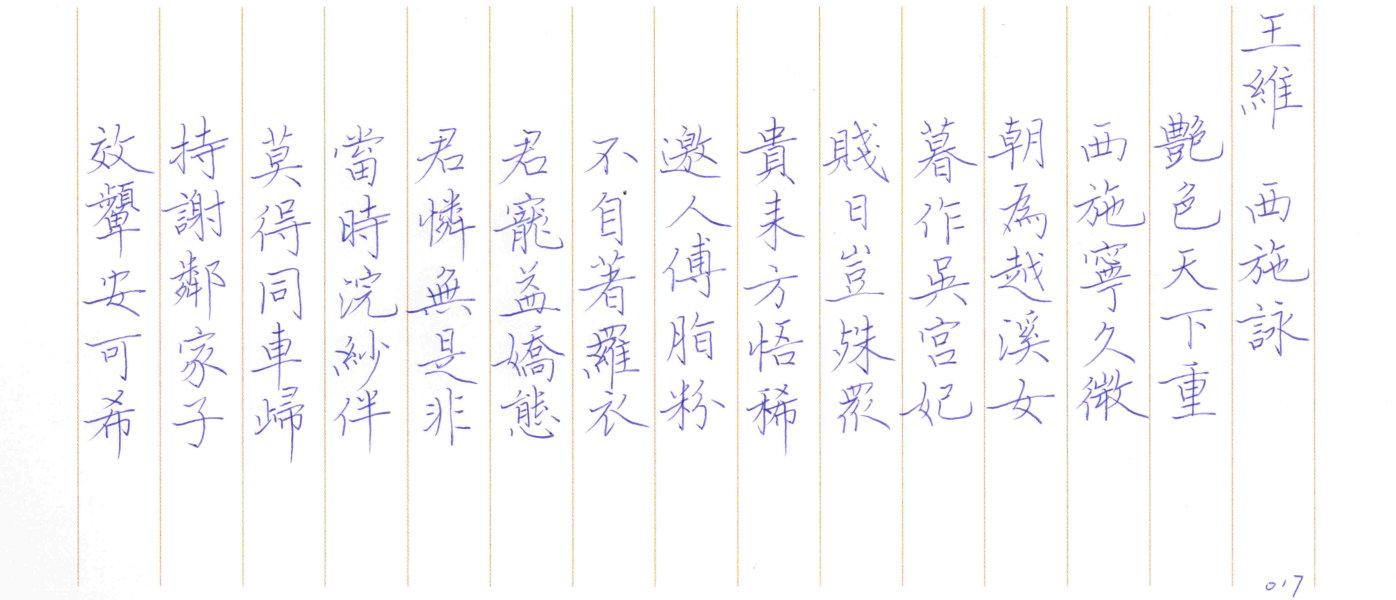 王維 西施詠
艷色天下重
西施寧久微
朝為越溪女
暮作吳宮妃
賤日豈殊眾
貴来方悟稀
邀人傅脂粉
不自著羅衣
君寵益嬌態
君憐無是非
當時浣紗伴
莫得同車歸
持謝鄰家子
效顰安可希
017